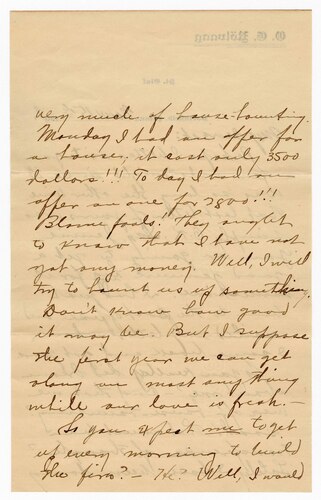 very much of house-hunting.
Monday I had an offer for
a house; it cost only 3500
dollars!!! To day I had an
offer on one for 2800!!!
Blame fools! They ought
to know that I have not
got any money. Well, I will
try to hunt us up something.
Don't know how good
it may be. But I suppose
the first year we can get
along on most anything
while our love is fresh.–
So you expect me to get
up every morning to build
the fire?– He? Well, I would